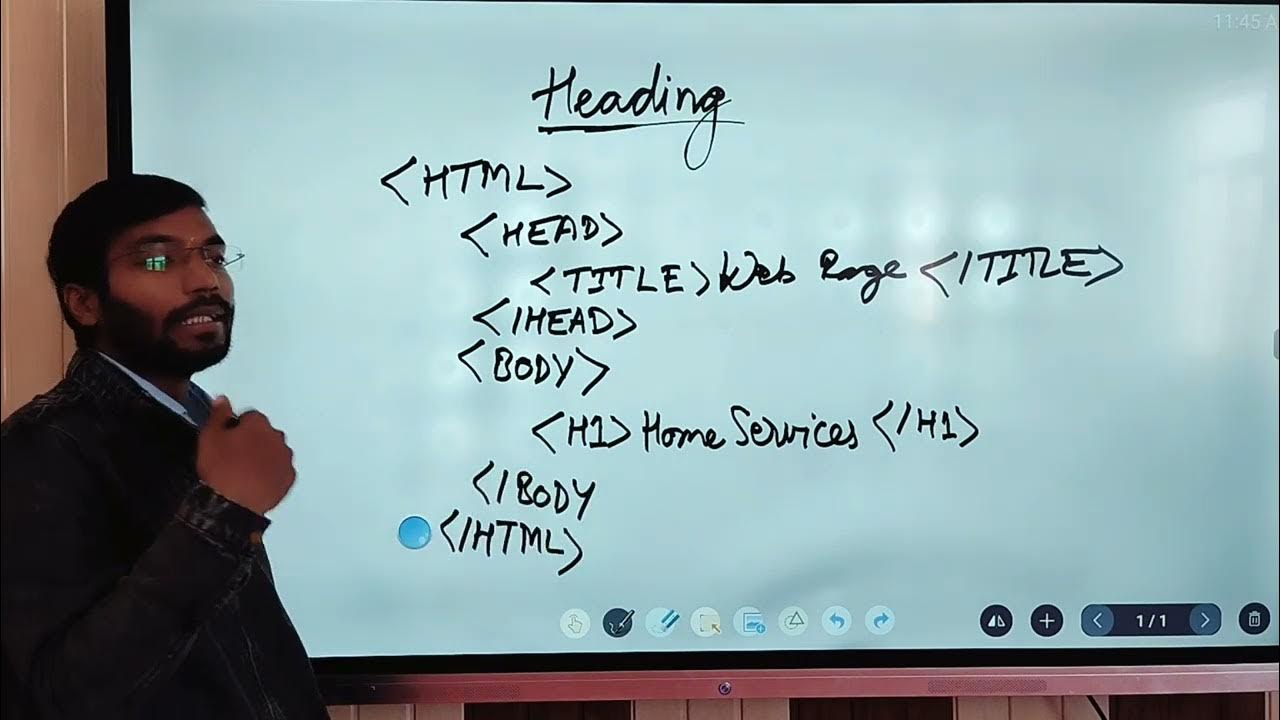 11:45 A
Heading
<HTML>
<HEAD>
<TITLE>Web Page </TITLE>
</HEAD>
<BODY>
<H1>Home Services </H1>
</BODY
</HTML>
1/1